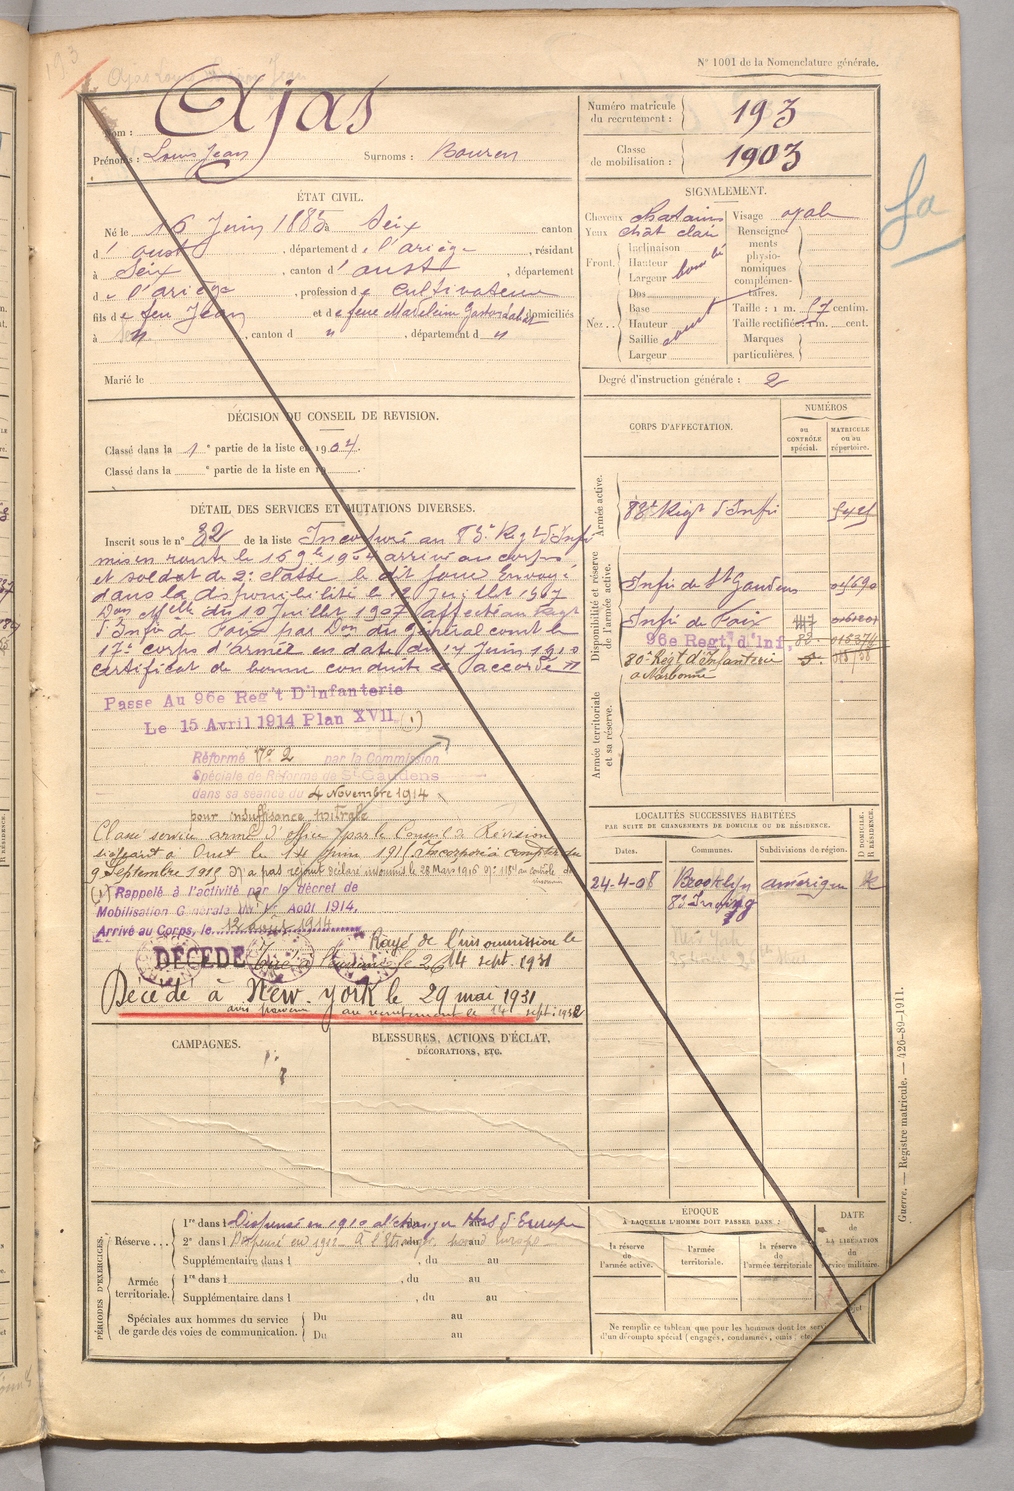 N° 1001 de la Nomenclature générale.
193
Nom : Ajas
Prénoms : Louis Jean Surnoms : Bouren
Numéro matricule du recrutement : 193
Classe de mobilisation : 1903
ÉTAT CIVIL.
Né le 16 Juin 1883 à Seix canton
d' oust, département de l'ariège, résidant
à Seix, canton d' oust, département
de l'ariège, profession de cultivateur
fils de feu Jean et de feue domiciliés
à " , canton d " , département d "
Marié le
SIGNALEMENT.
Cheveux chatains
Yeux chat clair
Front. Inclinaison
Hauteur
Largeur bombé
Nez.. Dos
Base
Hauteur
Saillie
Largeur
Visage oval
Renseignements physionomiques complémentaires.
Taille : 1 m. 57 centim.
Taille rectifiée : 1 m. cent.
Marques particulières.
Degré d'instruction générale : 2
DÉCISION DU CONSEIL DE REVISION.
Classé dans la 1e partie de la liste en 1904.
Classé dans la e partie de la liste en 19 .
DÉTAIL DES SERVICES ET MUTATIONS DIVERSES.
Inscrit sous le n° 32 de la liste Incorporé au 83e Regt d'Infie
mis en route le 15 9bre 1904 arrivé au corps
et soldat de 2e classe le dit jour Envoyé
dans la disponibilité le 12 Juillet 1907
Don effelle du 10 Juillet 1907 affecté au Regt
d'Infie de Foix par Don du Général comt le
17e corps d'armée en date du 17 Juin 1910
certificat de bonne conduite accordé
Passé Au 96e Reg't D'Infanterie
Le 15 Avril 1914 Plan XVII (1)
Réformé N° 2 par la Commission
Spéciale de Réforme de St Gaudens
dans sa séance du 4 Novembre 1914
pour insuffisance mitrale
Classé service armé d'office par le Conseil de Révision
siégeant à Oust le 14 Juin 1915 Incorporé à compter du
9 Septembre 1915 N'a pas rejoint déclaré insoumis le 28 Mars 1916
(1) Rappelé à l'activité par le décret de
Mobilisation Générale du 1er Août 1914,
Arrivé au Corps, le 12 août 1914
DÉCÉDÉ
Rayé de l'insoumission le
14 sept. 1931
Décédé à New-york le 29 mai 1931
avis parvenu au recrutement le 14 sept.
CORPS D'AFFECTATION.
NUMÉROS
du CONTRÔLE spécial.
MATRICULE ou au répertoire.
Armée active.
83e Regt d'Infie
Disponibilité et réserve de l'armée active.
Infie de St Gaudens
Infie de Foix
96e Regt. d'Inf.
80e Regt d'Infanterie
à Narbonne
Armée territoriale et sa réserve.
LOCALITÉS SUCCESSIVES HABITÉES
PAR SUITE DE CHANGEMENTS DE DOMICILE OU DE RÉSIDENCE.
Dates. Communes. Subdivisions de région. D. DOMICILE. R. RÉSIDENCE.
24-4-08 Brooklyn amérique R
New York
CAMPAGNES.
BLESSURES, ACTIONS D'ÉCLAT,
DÉCORATIONS, ETC.
PÉRIODES D'EXERCICES.
Réserve... 1re dans l Dispensé en 1910 à l'étranger Hors d'Europe
2e dans l Dispensé en 1912 à l'Etranger, hors d'Europe
Supplémentaire dans l , du au
Armée territoriale. 1re dans l , du au
Supplémentaire dans l , du au
Spéciales aux hommes du service de garde des voies de communication. Du au
Du au
ÉPOQUE
À LAQUELLE L'HOMME DOIT PASSER DANS :
la réserve de l'armée active.
l'armée territoriale.
la réserve de l'armée territoriale
DATE de LA LIBÉRATION du service militaire.
Ne remplir ce tableau que pour les hommes dont les
d'un décompte spécial (engagés, condamnés, omis, etc.
Guerre. — Registre matricule. — 426-89-1911.